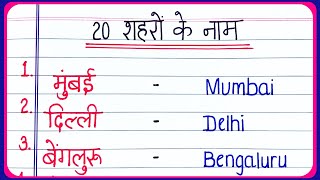 20 शहरों के नाम
1. मुंबई - Mumbai
2. दिल्ली - Delhi
3. बेंगलुरू - Bengaluru